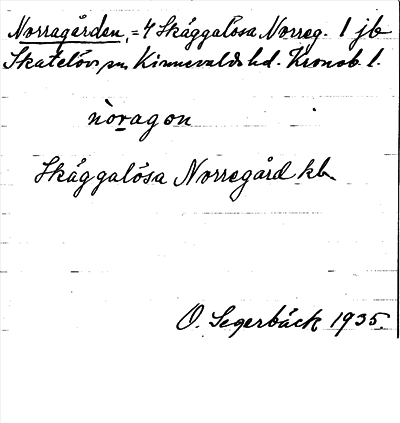 Norragården, = 4 Skäggalösa Norreg. 1 jb
Skatelövs sn Kinnevalds hd. Kronob. l.
nòragon
Skäggalösa Norregård kb.
O. Segerbäck 1935.